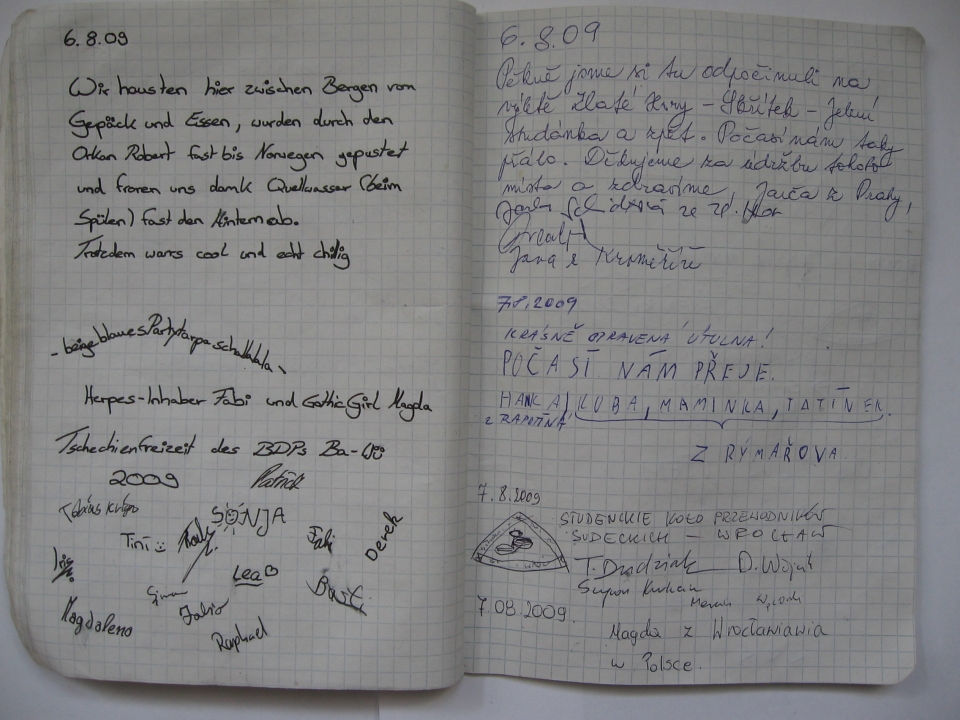 6.8.09
Wir hausten hier zwischen Bergen von
Gepäck und Essen, wurden durch den
Orkan Robert fast bis Norwegen gepustet
und froren uns dank Quellwasser (beim
Spülen) fast den Hintern ab.
Trotzdem wars cool und echt chillig
- beigeblauesPartytarpschallalala
Herpes-Inhaber Fabi und GothicGirl Magda
Tschechienfreizeit des BDPs Ba-Wü
2009 Patrick
Tobias SONJA
Tini Fabi Derek
Iris Lea
Basti
Magdalena Fabio
Raphael
6.8.09
Pěkně jsme si tu odpočinuli na
výletě Zlaté Hory - Skřítek - Jelení
studánka a zpět. Počasí nám taky
přálo. Děkujeme za údržbu tohoto
místa a zdravíme, Jarča z Prahy,
ze
Jana z Kroměříže
7.8.2009
KRÁSNĚ OPRAVENÁ ÚTULNA!
POČASÍ NÁM PŘEJE.
HANKA, KUBA, MAMINKA, TATÍNEK.
Z RAPOTÍNA
Z RÝMAŘOVA
7.8.2009
STUDENCKIE KOŁO PRZEWODNIKÓW
SUDECKICH - WROCŁAW
T. D.
7.08.2009.
Magda z Wrocławia
w Polsce.